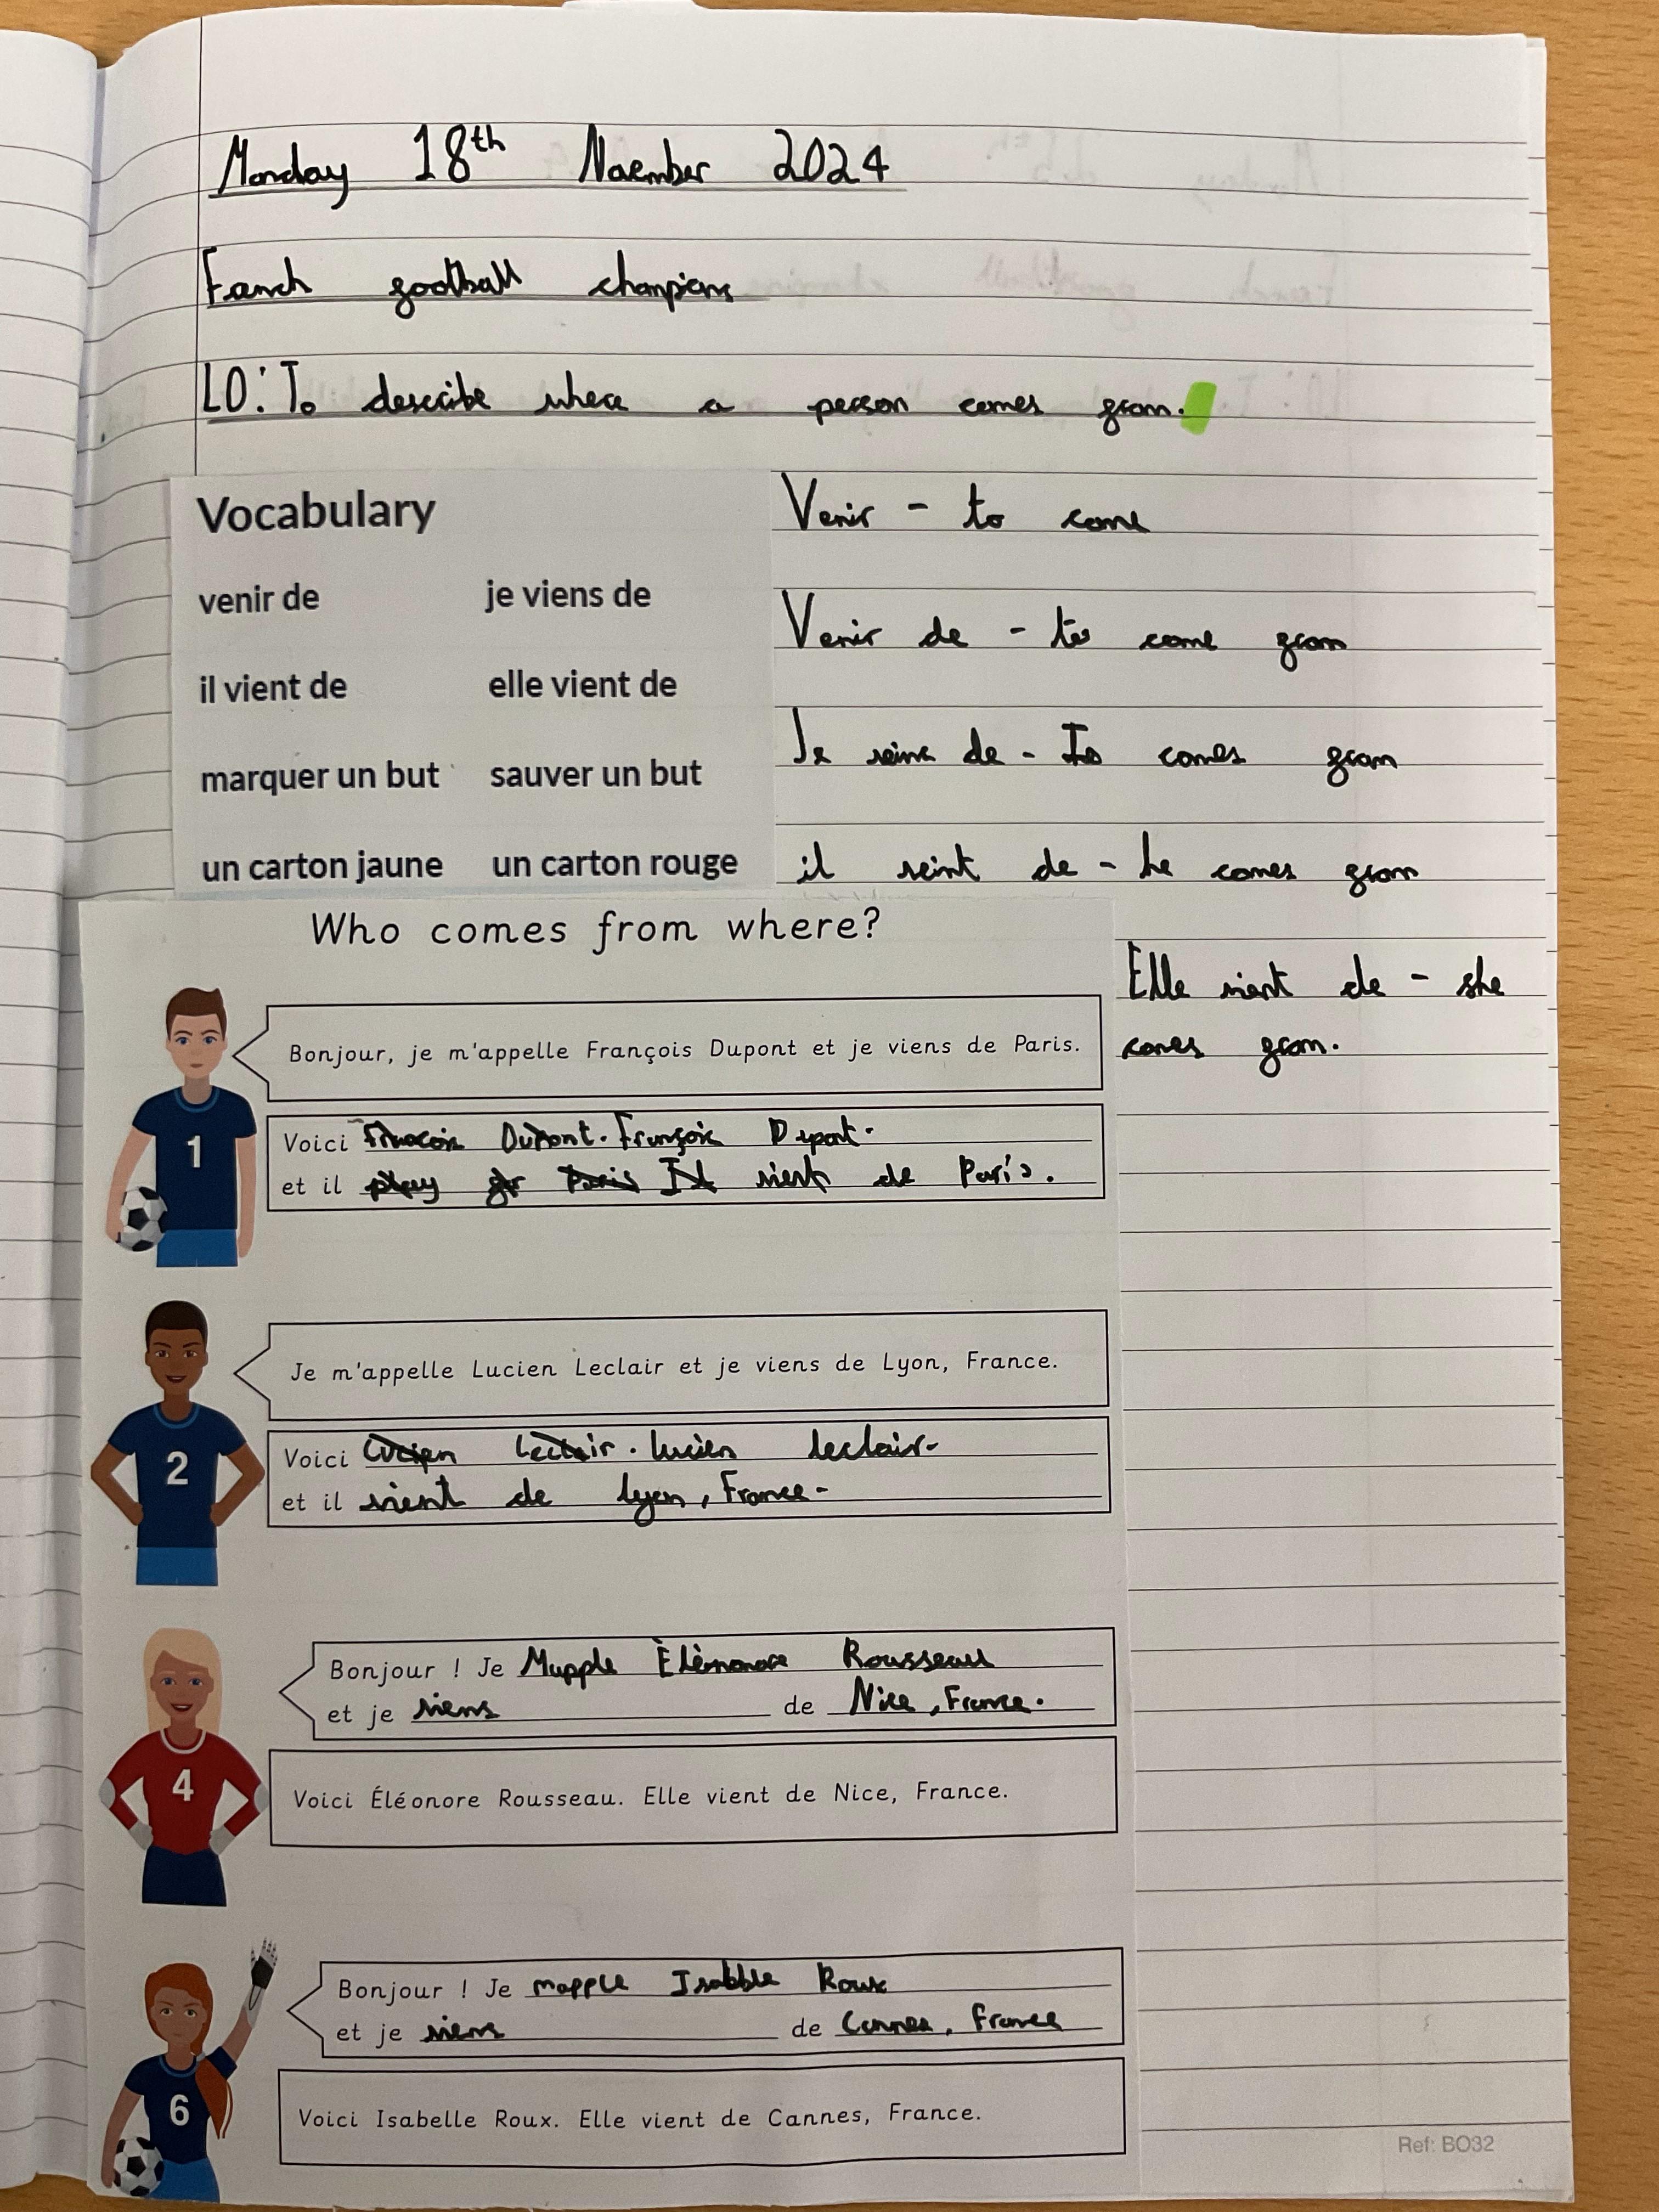 Monday 18th November 2024
Fanch football champions
LO: To describe where a person comes from.
Vocabulary
venir de je viens de
il vient de elle vient de
marquer un but sauver un but
un carton jaune un carton rouge
Venir - to come
Venir de - to come from
Je de - comes from
il veint de - he comes from
Elle vient de - she
comes from.
Who comes from where?
1
Bonjour, je m'appelle François Dupont et je viens de Paris.
Voici Dupont. Françoix Dupont.
et il play for Paris Il vient de Paris.
2
Je m'appelle Lucien Leclair et je viens de Lyon, France.
Voici Lucien Leclair. lucien leclair.
et il vient de lyon, France.
4
Bonjour ! Je Mapple Rousseau
et je viens de Nice, France.
Voici Éléonore Rousseau. Elle vient de Nice, France.
6
Bonjour ! Je mapple Isabble Roux
et je viens de Cannes, France
Voici Isabelle Roux. Elle vient de Cannes, France.
Ref: BO32